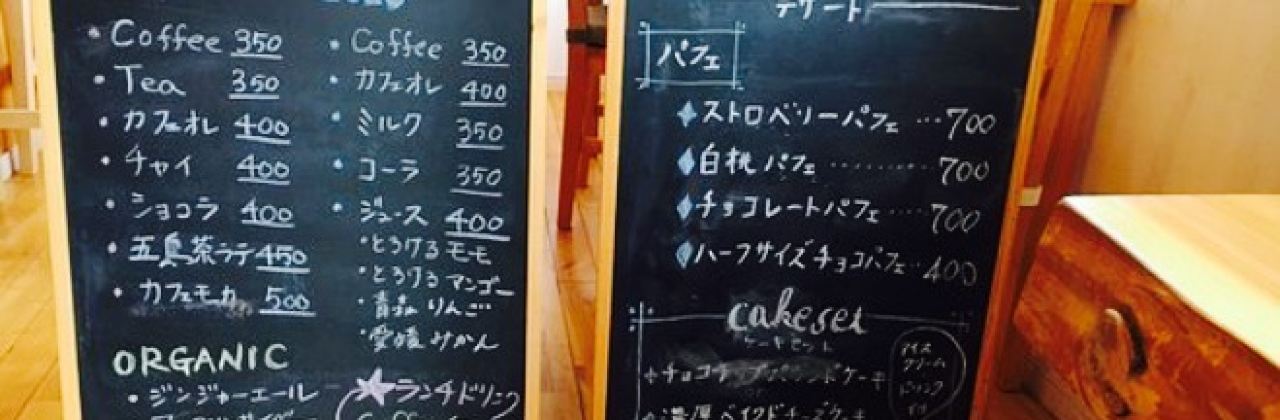 • Coffee 350
• Tea 350
• カフェオレ 400
• チャイ 400
• ショコラ 400
• 五島茶ラテ 450
• カフェモカ 500
ORGANIC
• ジンジャーエール
• Coffee 350
• カフェオレ 400
• ミルク 350
• コーラ 350
• ジュース 400
• とろけるモモ
• とろけるマンゴー
• 青森りんご
• 愛媛みかん
★ランチドリンク
デザート
パフェ
ストロベリーパフェ …700
白桃パフェ ……… 700
チョコレートパフェ …… 700
ハーフサイズチョコパフェ … 400
cakeset
ケーキセット
ケーキ
濃厚ベイクドチーズケーキ
アイス
クリーム
ドリンク
付